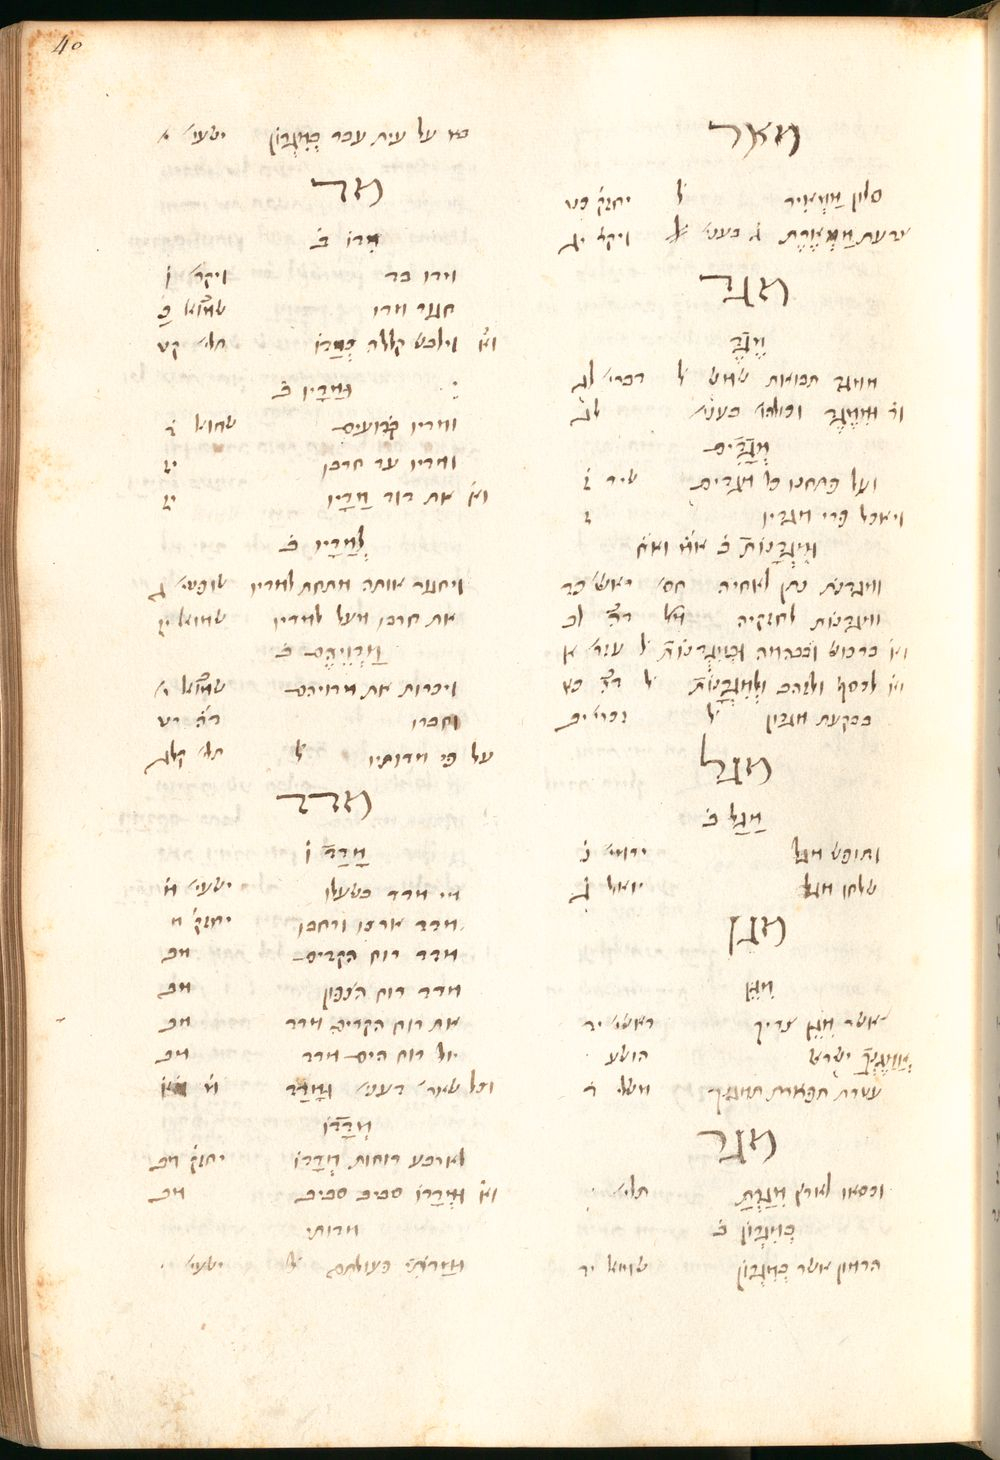 40
מאר
סלון מַמְאִיר ל יחזק כט
צרעת מַמְאֶרֶת ג בענ ויקר יג
מגד
מֶגֶד
ממגד תבואות שמש ל דברי לג
וֹ וּמִמֶּגֶד וכולהו בענינ לג
מְגָדִים
ועל פתחנו כל מגדים שיר ז
ויאכל פרי מגדיו ד
מִגְדָּנוֹת ב
ומגדנות נתן לאחיה חס ראשי כד
ומגדנות לחזקיה לב
ברכוש ובבהמה וּבְמִגְדָּנוֹת ל עזר א
לכסף ולזהב וּלְמִגְדָּנוֹת ל כא
בבקעת מגדון ל זכרי יב
מגל
מַגַּל ב
ותופש מגל ירמי נ
שלחו מגל יואל ד
מגן
מִגֵּן
אשר מִגֵּן צריך ראשי יד
אֲמַגֶּנְךָ ישרא הושע
עטרת תפארת תמגנך משלי ד
מגר
וכסאו לארץ מִגַּרְתָּ תלי
בְּמִגְרוֹן ב
הרמון אשר בְּמִגְרוֹן שמוא יד
בא על עית עבר בְּמִגְרוֹן ישעי י
מד
מִדּוֹ ב
מדו בד ויקר ו
חגור מדו שמוא כ
וילבש קללה כְּמַדּוֹ תלי קט
מַדָּיו ב
ומדיו קרועים שמוא ד
ומדיו על חרבו יז
את דוד מַדָּיו יז
לְמַדָּיו ב
ויחגור אותה מתחת למדיו שופטי ג
את חרבו מעל למדיו שמוא יז
מַדְוֵיהֶם ב
ויכרות את מדויהם שמוא י
וחברו יט
על פי מדותיו ל תלי קלג
מדד
מָדַד ו
מי מדד בשעלו ישעי מ
מדד ארכו ורחבו יחזק מ
מדד רוח הקדים מב
מדד רוח הצפון מב
את רוח הקדים מדד מב
אל רוח הים מדד מב
וכל שאר דענינ וּמָדַד
מְדָדוֹ
לארבע רוחות מְדָדוֹ יחזק מב
וּמְדָדוֹ סביב סביב מב
מדותי
וּמַדֹּתִי פעולתם ל ישעי